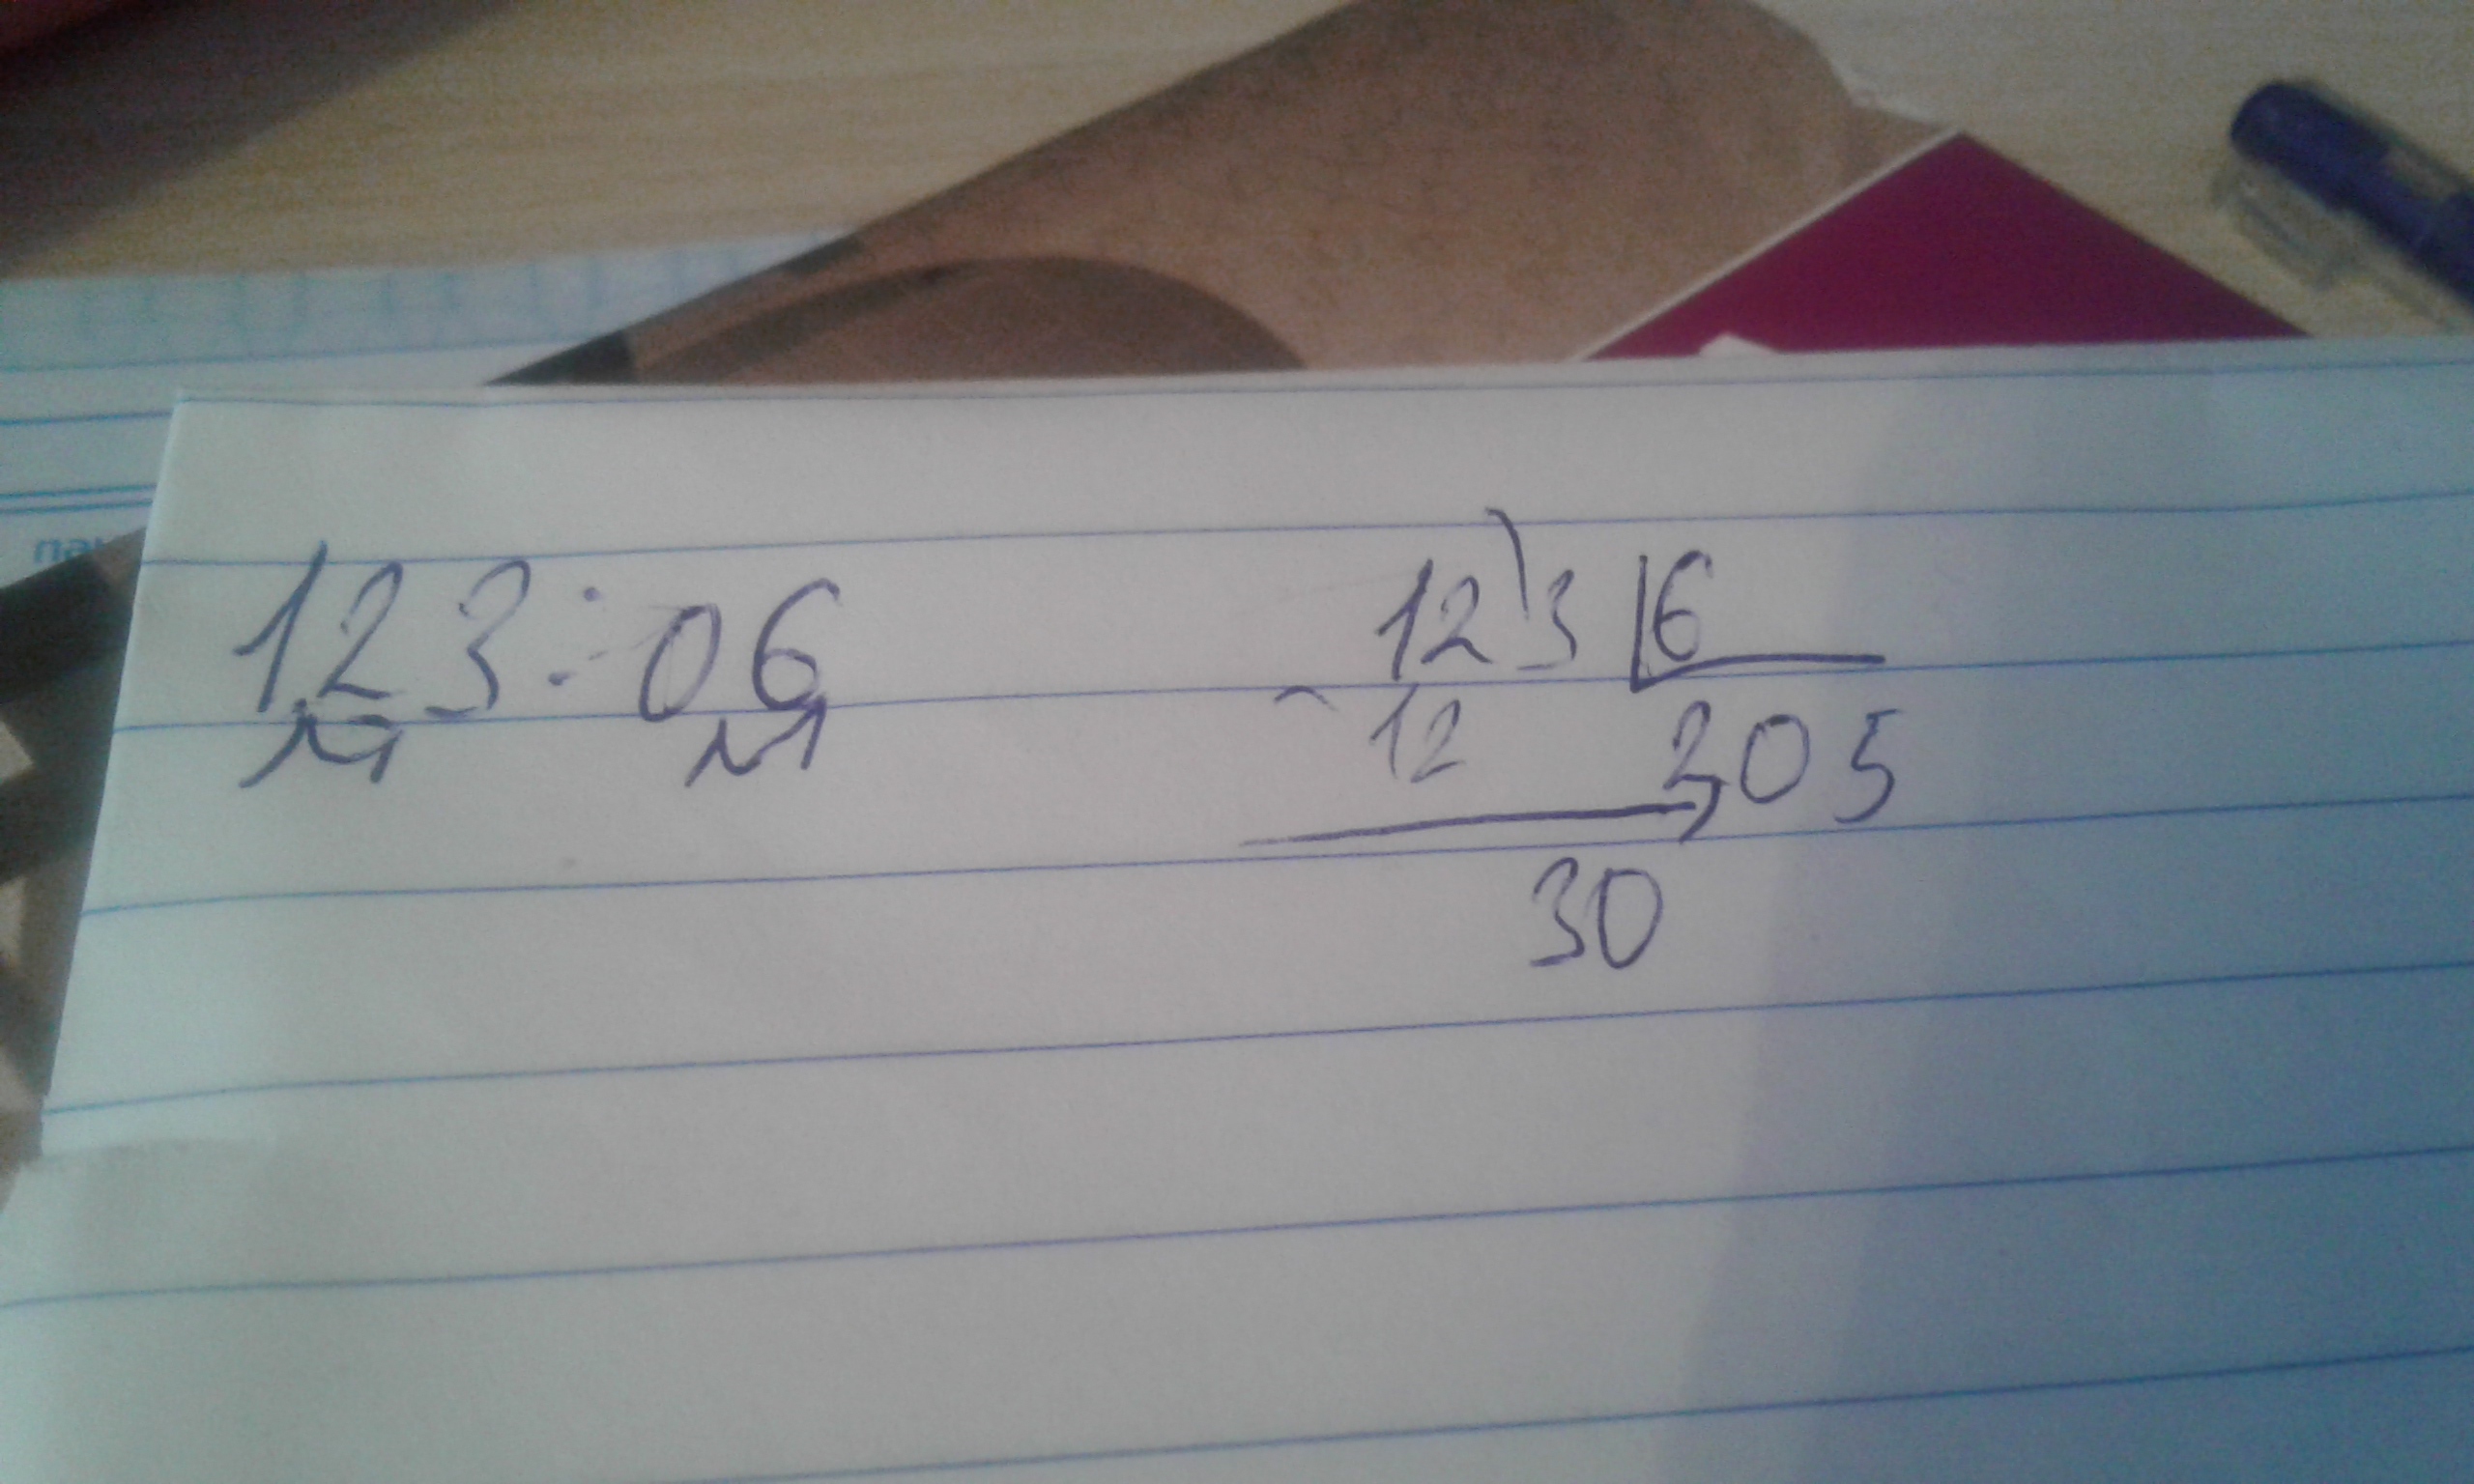 1,23:0,6
12,3 6
- 12 2,05
30